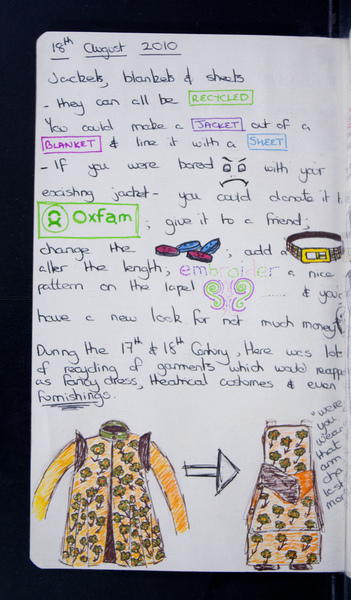 18th August 2010
Jackets, blankets & sheets
- they can all be RECYCLED
You could make a JACKET out of a
BLANKET & line it with a SHEET
- If you were bored with your
existing jacket - you could donate it t
Oxfam; give it to a friend;
change the ; add a
alter the length; embroider a nice
pattern on the lapel ........ & you
have a new look for not much money
During the 17th & 18th Century, there was lot
of recycling of garments which would reapp
as fancy dress, theatrical costumes & even
furnishings.
"were
you
wear
that
arm
cha
last
mor